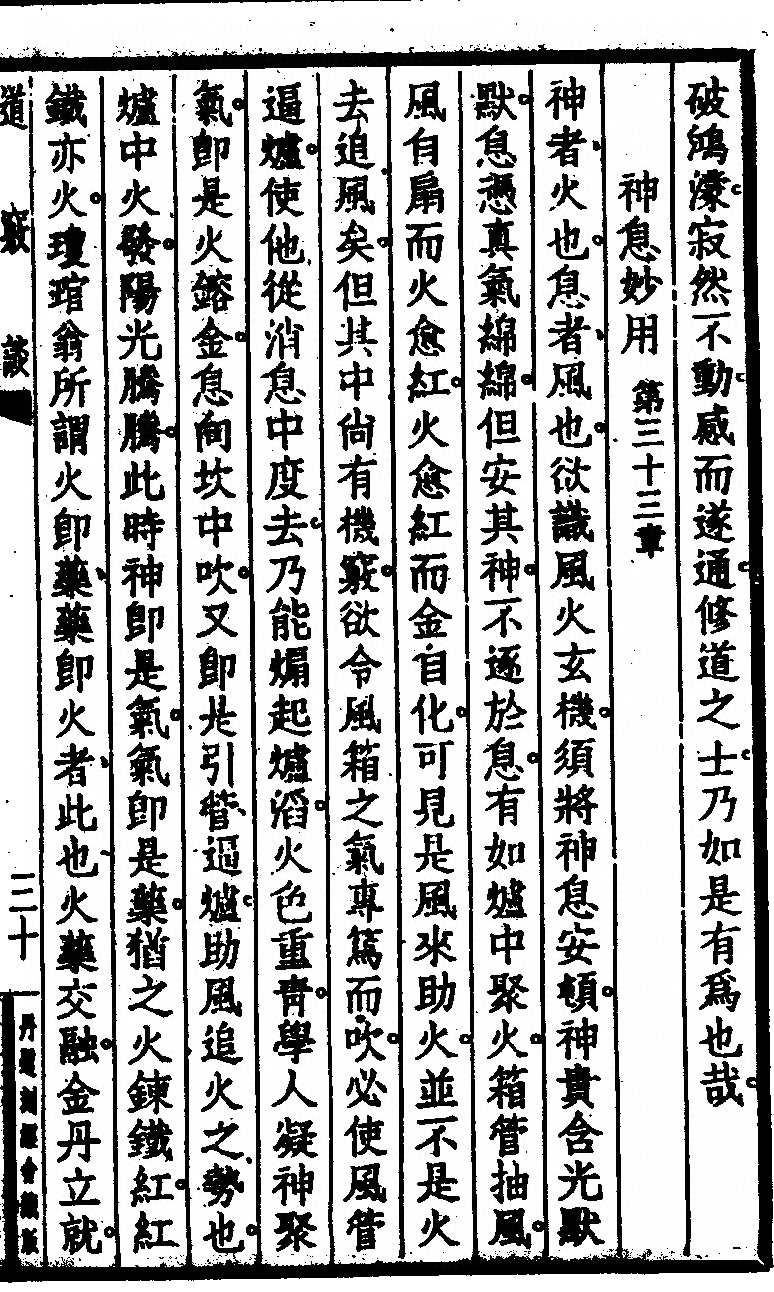 破鴻濛寂然不動感而遂通修道之士乃如是有爲也哉
神息妙用 第三十三章
神者火也息者風也欲識風火玄機須將神息安頓神貴含光默
默息憑真氣綿綿但安其神不逐於息有如爐中聚火箱管抽風
風自扇而火愈紅火愈紅而金自化可見是風來助火並不是火
去追風矣但其中尙有機竅欲令風箱之氣專篤而吹必使風管
逼爐使他從消息中度去乃能煽起爐滔火色重靑學人凝神聚
氣卽是火鎔金息向坎中吹又卽是引管逼爐助風追火之勢也
爐中火發陽光騰騰此時神卽是氣氣卽是藥猶之火鍊鐵紅紅
鐵亦火瓊琯翁所謂火卽藥藥卽火者此也火藥交融金丹立就
道竅談
三十
丹道刻經會鐵版